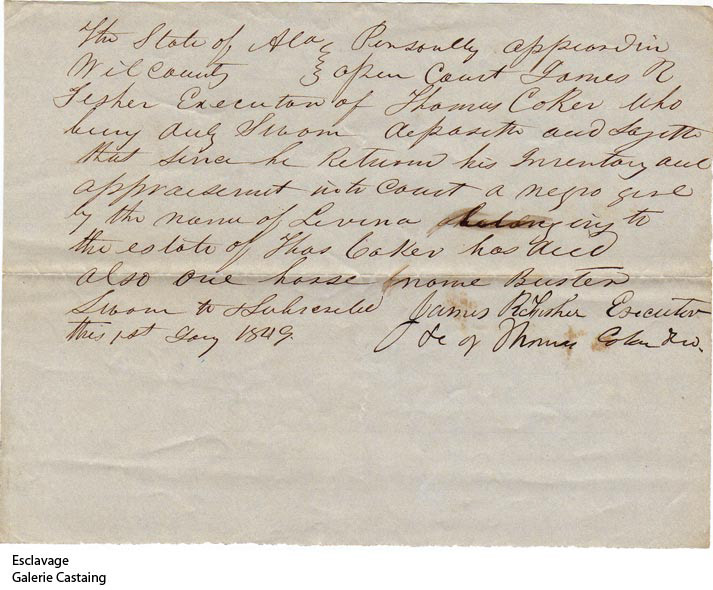 The State of Ala Personally appeard in
Wil County open Court James R
Fisher Executor of Thomas Coker who
being duly Sworn deposeth and Sayeth
that since he Return his Inventory and
appraisement into Court a negro girl
by the name of Levina belonging to
the estate of Thos Coker has died
also one horse name Buster
Sworn to & Subscribed James R Fisher Executor
this 1st Jany 1849 &c of Thomas Coker
Esclavage
Galerie Castaing